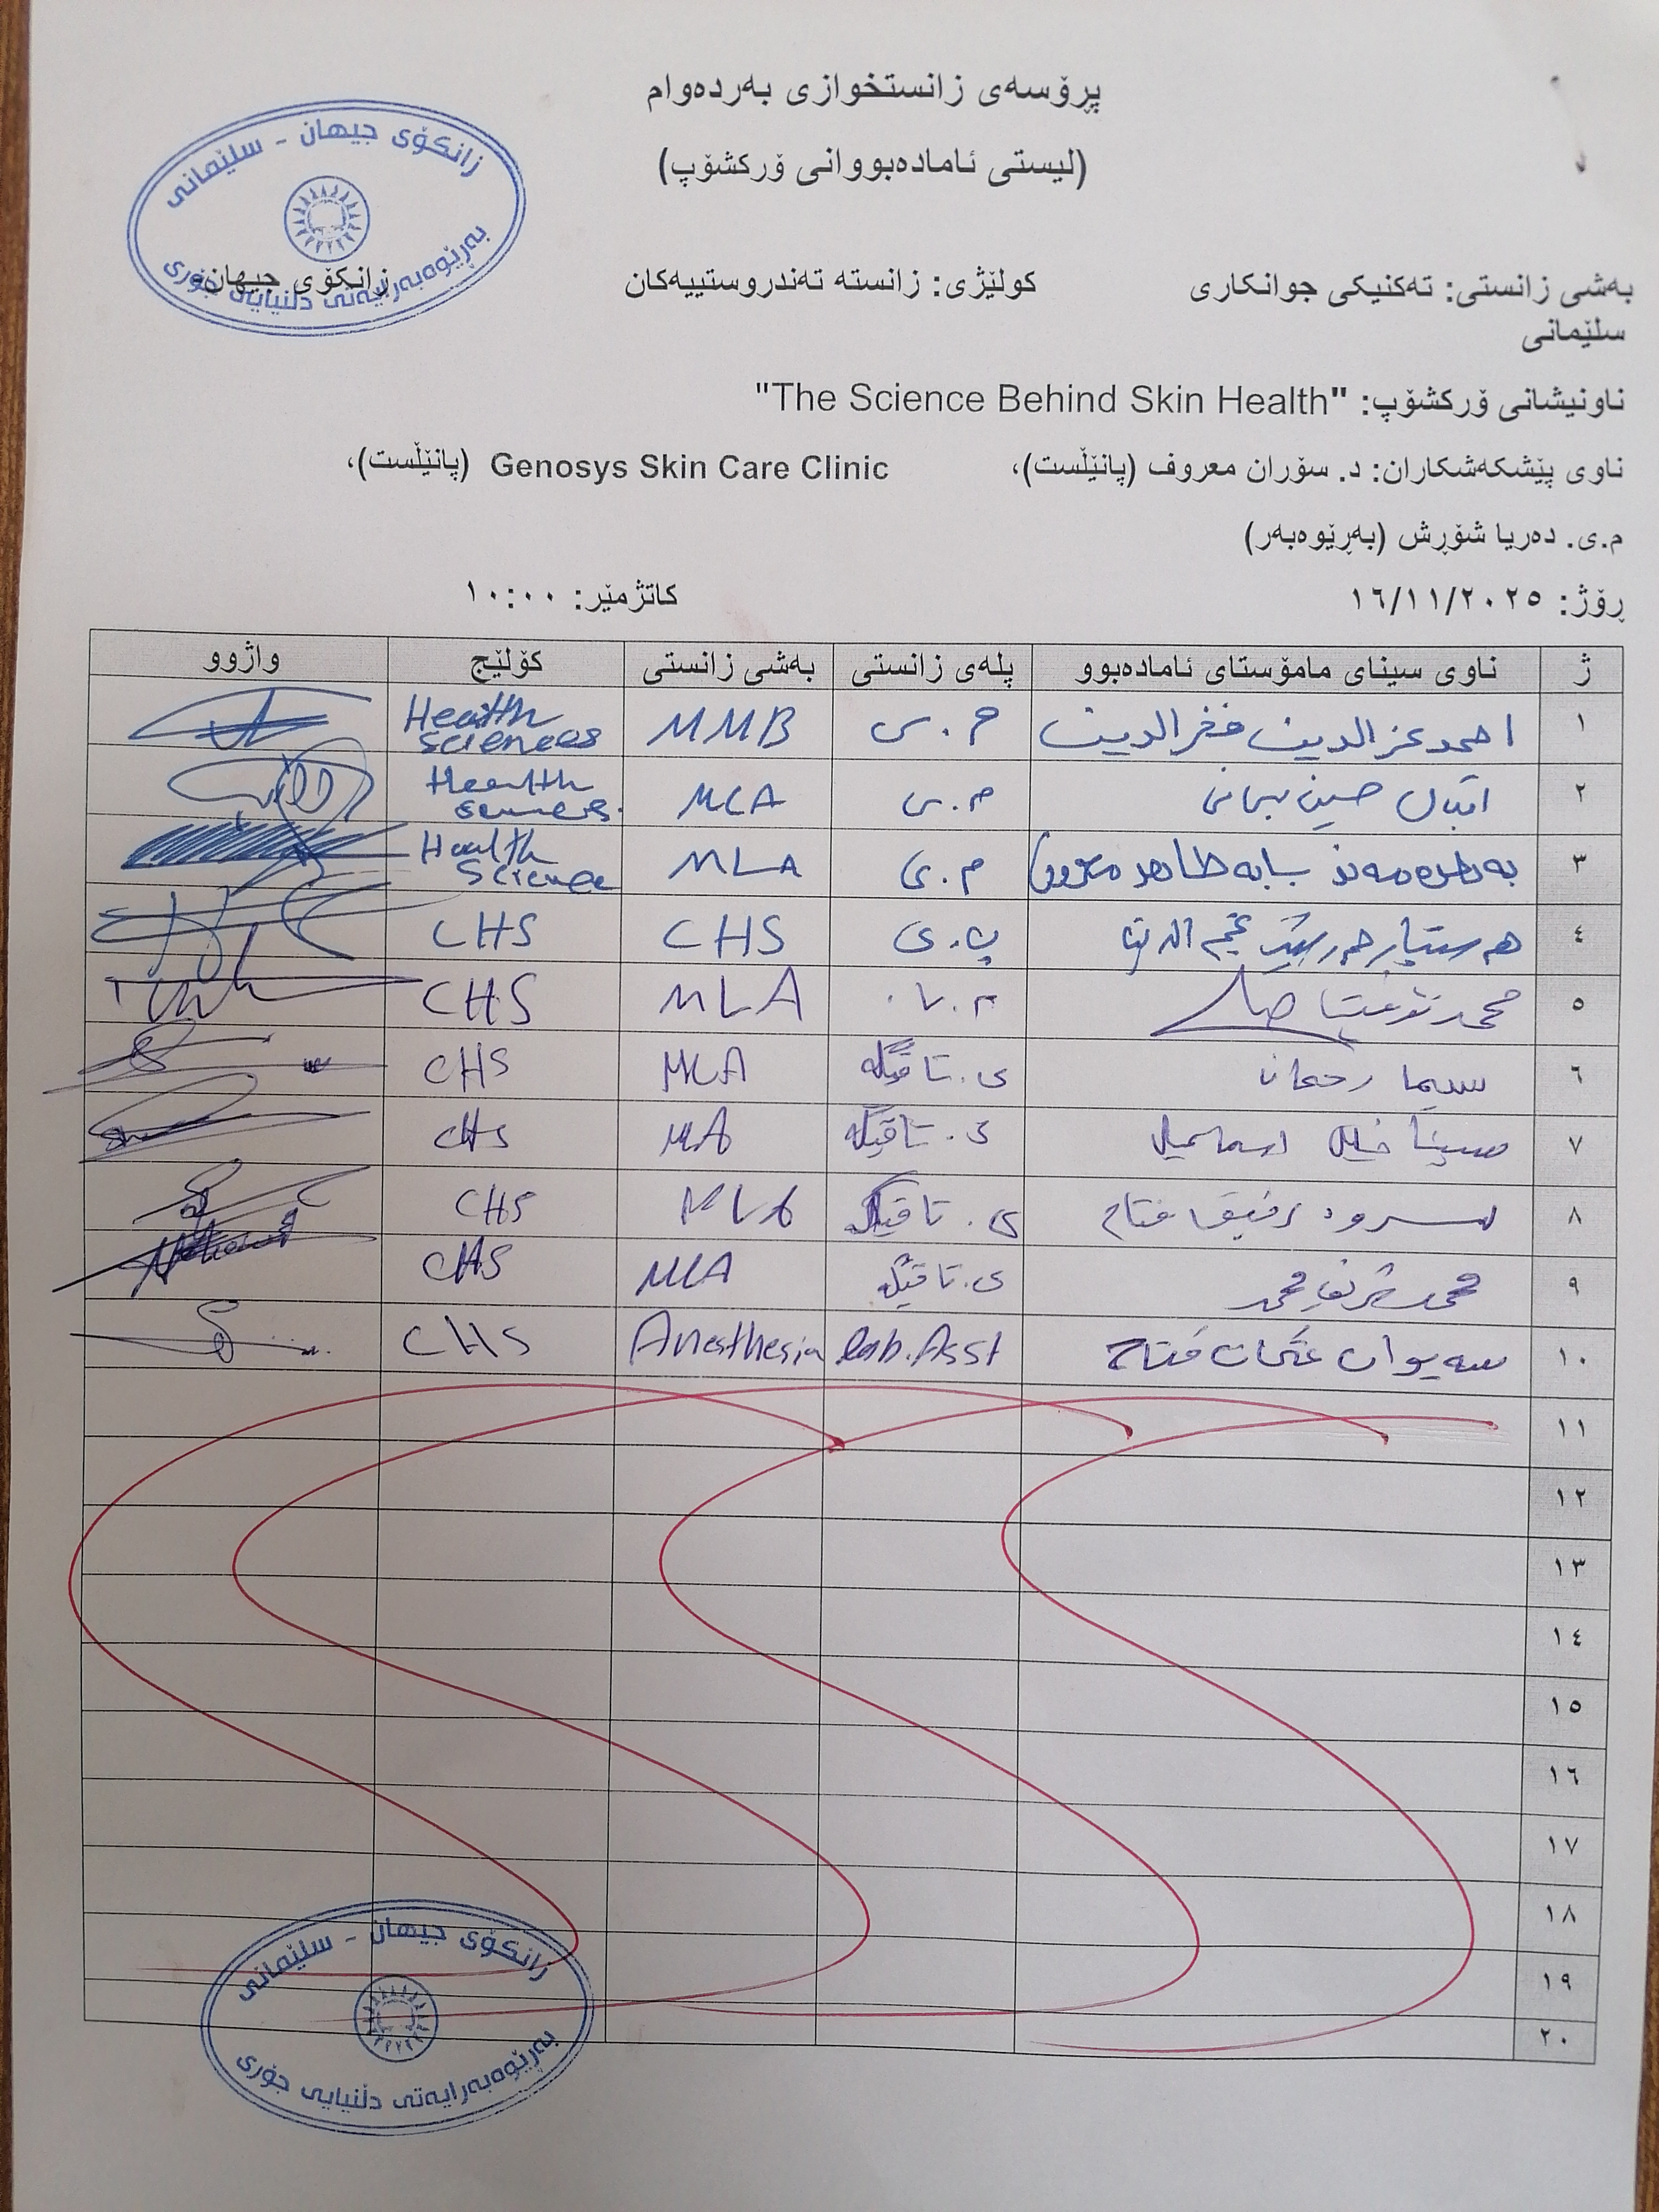 پڕۆسەی زانستخوازی بەردەوام
(لیستی ئامادەبووانی ۆرکشۆپ)
زانکۆی جیهان - سلێمانی
بەڕێوەبەرایەتی دڵنیایی جۆری
بەشی زانستی: تەکنیکی جوانکاری کولێژی: زانستە تەندروستییەکان زانکۆی جیهان-
سلێمانی
ناونیشانی ۆرکشۆپ: "The Science Behind Skin Health"
ناوی پێشکەشکاران: د. سۆران معروف (پانێڵست)، Genosys Skin Care Clinic (پانێڵست)،
م.ی. دەریا شۆڕش (بەڕێوەبەر)
ڕۆژ: ١٦/١١/٢٠٢٥ کاتژمێر: ١٠:٠٠
ژ ناوی سینای مامۆستای ئامادەبوو پلەی زانستی بەشی زانستی کۆلێج واژوو
١ احمد عزالدین فخرالدین م.ی MMB Health Sciences
٢ اقبال حسین م.ی MLA Health Sciences.
٣ بەهرەمەند بابە طاهر معروف م.ی MLA Health Science
٤ پ.ی CHS CHS
٥ محمد توفیق صالح MLA CHS
٦ سیما رحمان ی.تاقیگە MLA CHS
٧ خلیل اسماعیل ی.تاقیگە MLA CHS
٨ سرود رفیق فتاح ی.تاقیگە MLA CHS
٩ محمد شریف محمد ی.تاقیگە MLA CHS
١٠ سەیوان عثمان فتاح Lab.Asst Anesthesia CHS
١١
١٢
١٣
١٤
١٥
١٦
١٧
١٨
١٩
٢٠
زانکۆی جیهان - سلێمانی
بەڕێوەبەرایەتی دڵنیایی جۆری